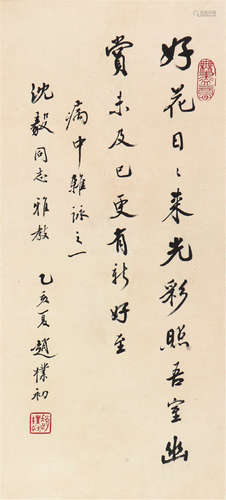 好花日日来光彩照吾室幽
赏未及已更有新好至
病中杂咏之一
沈毅同志雅教
乙亥夏趙樸初